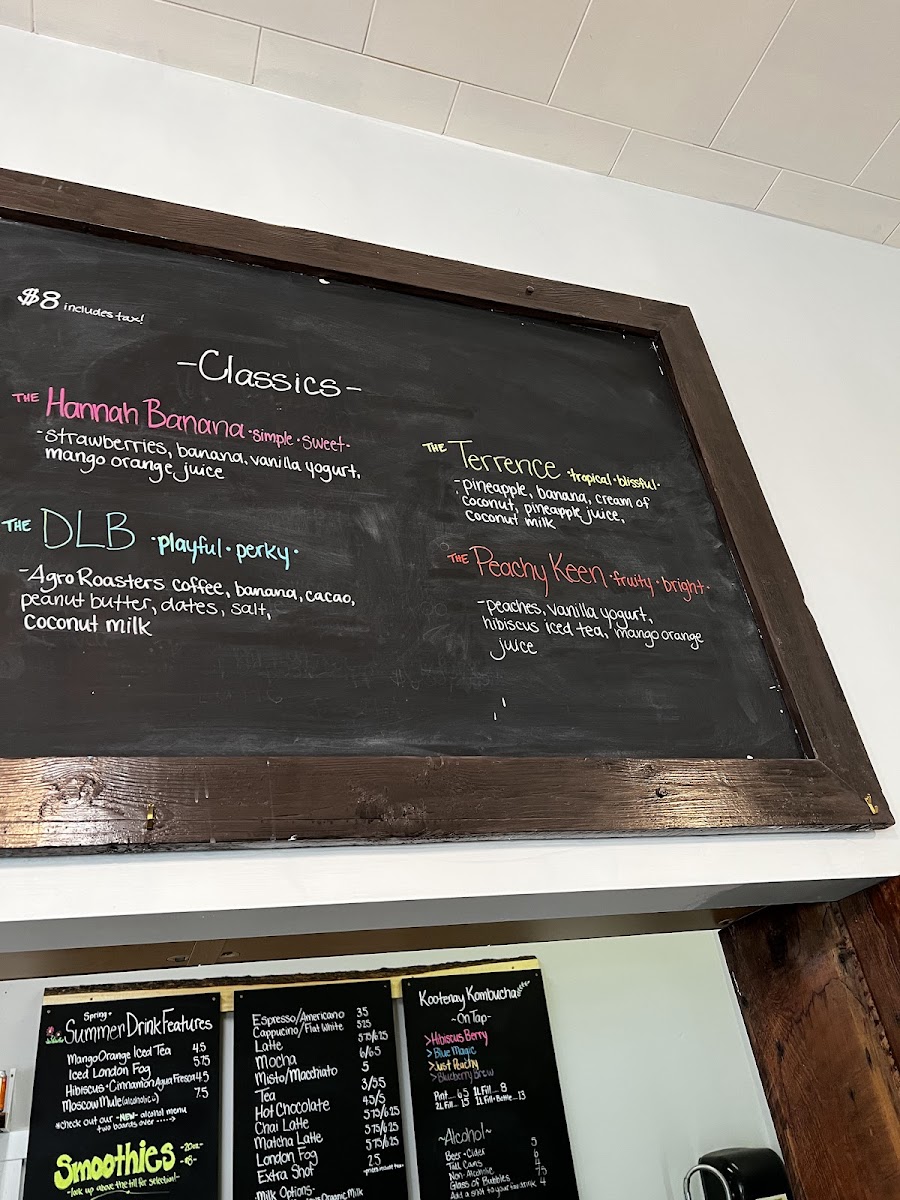 $8 includes tax!
-Classics-
THE Hannah Banana ·simple·sweet·
-strawberries, banana, vanilla yogurt,
mango orange juice
THE DLB ·playful·perky·
-Agro Roasters coffee, banana, cacao,
peanut butter, dates, salt,
coconut milk
THE Terrence ·tropical·blissful·
-pineapple, banana, cream of
coconut, pineapple juice,
coconut milk
THE Peachy Keen ·fruity·bright·
-peaches, vanilla yogurt,
hibiscus iced tea, mango orange
juice
Spring +
Summer Drink Features
Mango Orange Iced Tea 4.5
Iced London Fog 5.75
Hibiscus·Cinnamon Agua Fresca 4.5
Moscow Mule (alcoholic) 7.5
*check out our -NEW- alcohol menu
two boards over ---->
Smoothies -20oz- -$8-
-look up above the till for selection!-
Espresso/Americano 3.5
Cappucino/Flat White 5.25
Latte 5.75/6.25
Mocha 6/6.5
Misto/Macchiato 5
Tea 3/3.5
Hot Chocolate 4.5/5
Chai Latte 5.75/6.25
Matcha Latte 5.75/6.25
London Fog 5.75/6.25
Extra Shot 2.5
-prices include tax-
Milk Options-
Organic Milk
Kootenay Kombucha
-On Tap-
>Hibiscus Berry
>Blue Magic
>Just Peachy
>Blueberry Brew
Pint_ 6.5 1L Fill_ 8
2L Fill_ 15 1L Fill+Bottle_ 13
~Alcohol~
Beer·Cider 5
Tall Cans 6
Non-Alcoholic 4
Glass of Bubbles 7.5
Add a shot to your tea/drink 4